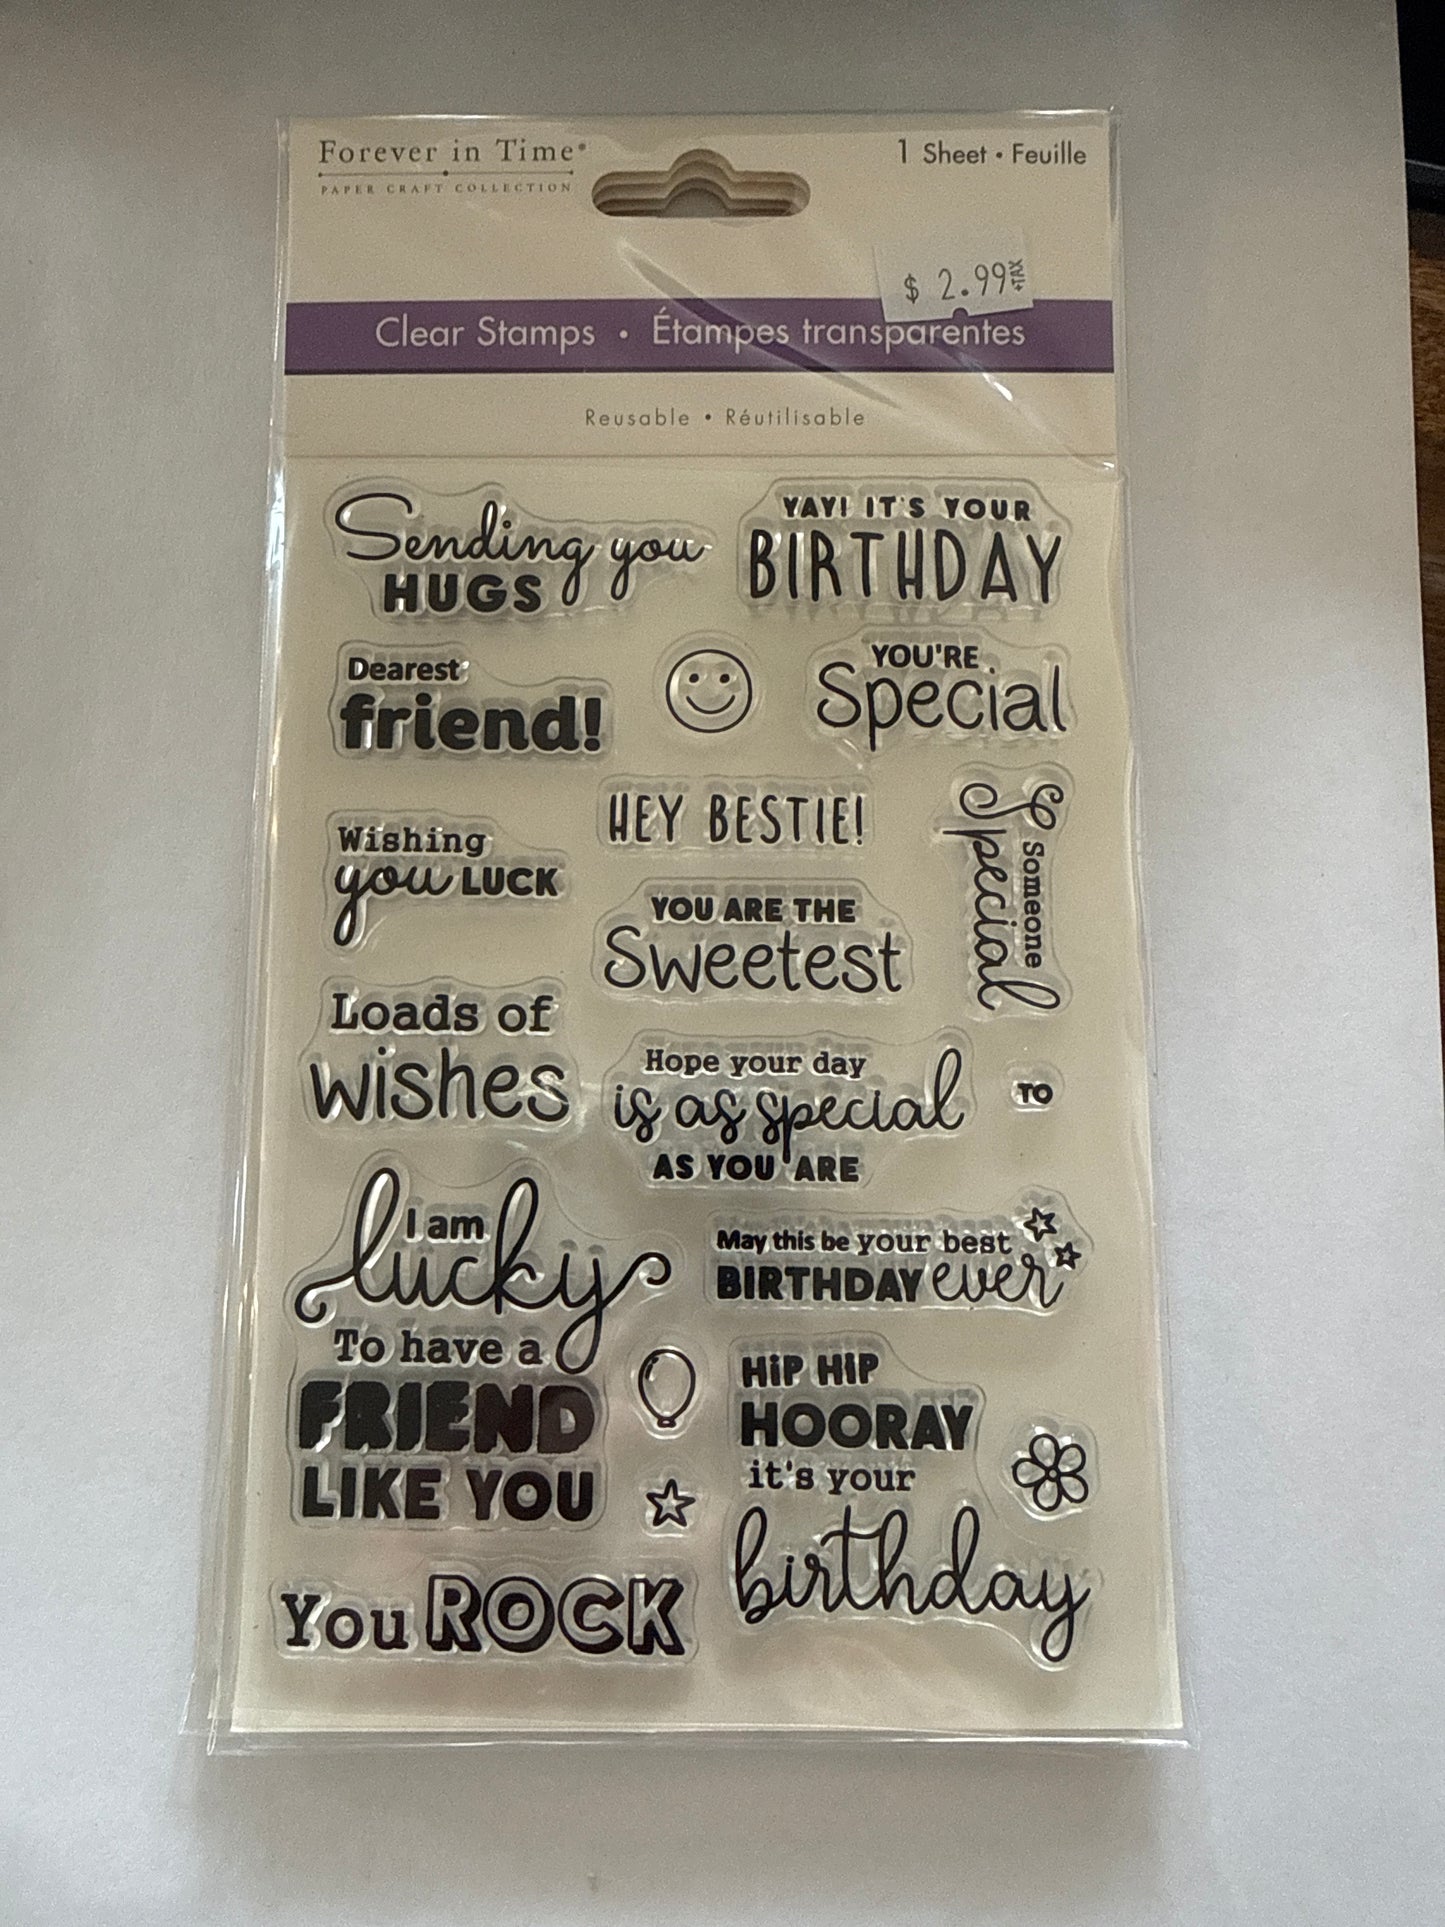 Forever in Time®
PAPER CRAFT COLLECTION
1 Sheet • Feuille
$ 2.99 +TAX
Clear Stamps • Étampes transparentes
Reusable • Réutilisable
Sending you
HUGS
YAY! IT'S YOUR
BIRTHDAY
Dearest
friend!
YOU'RE
Special
Wishing
you LUCK
HEY BESTIE!
Someone
Special
YOU ARE THE
Sweetest
Loads of
wishes
Hope your day
is as special
AS YOU ARE
TO
I am
lucky
To have a
FRIEND
LIKE YOU
May this be your best
BIRTHDAY ever
HiP HiP
HOORAY
it's your
birthday
You ROCK